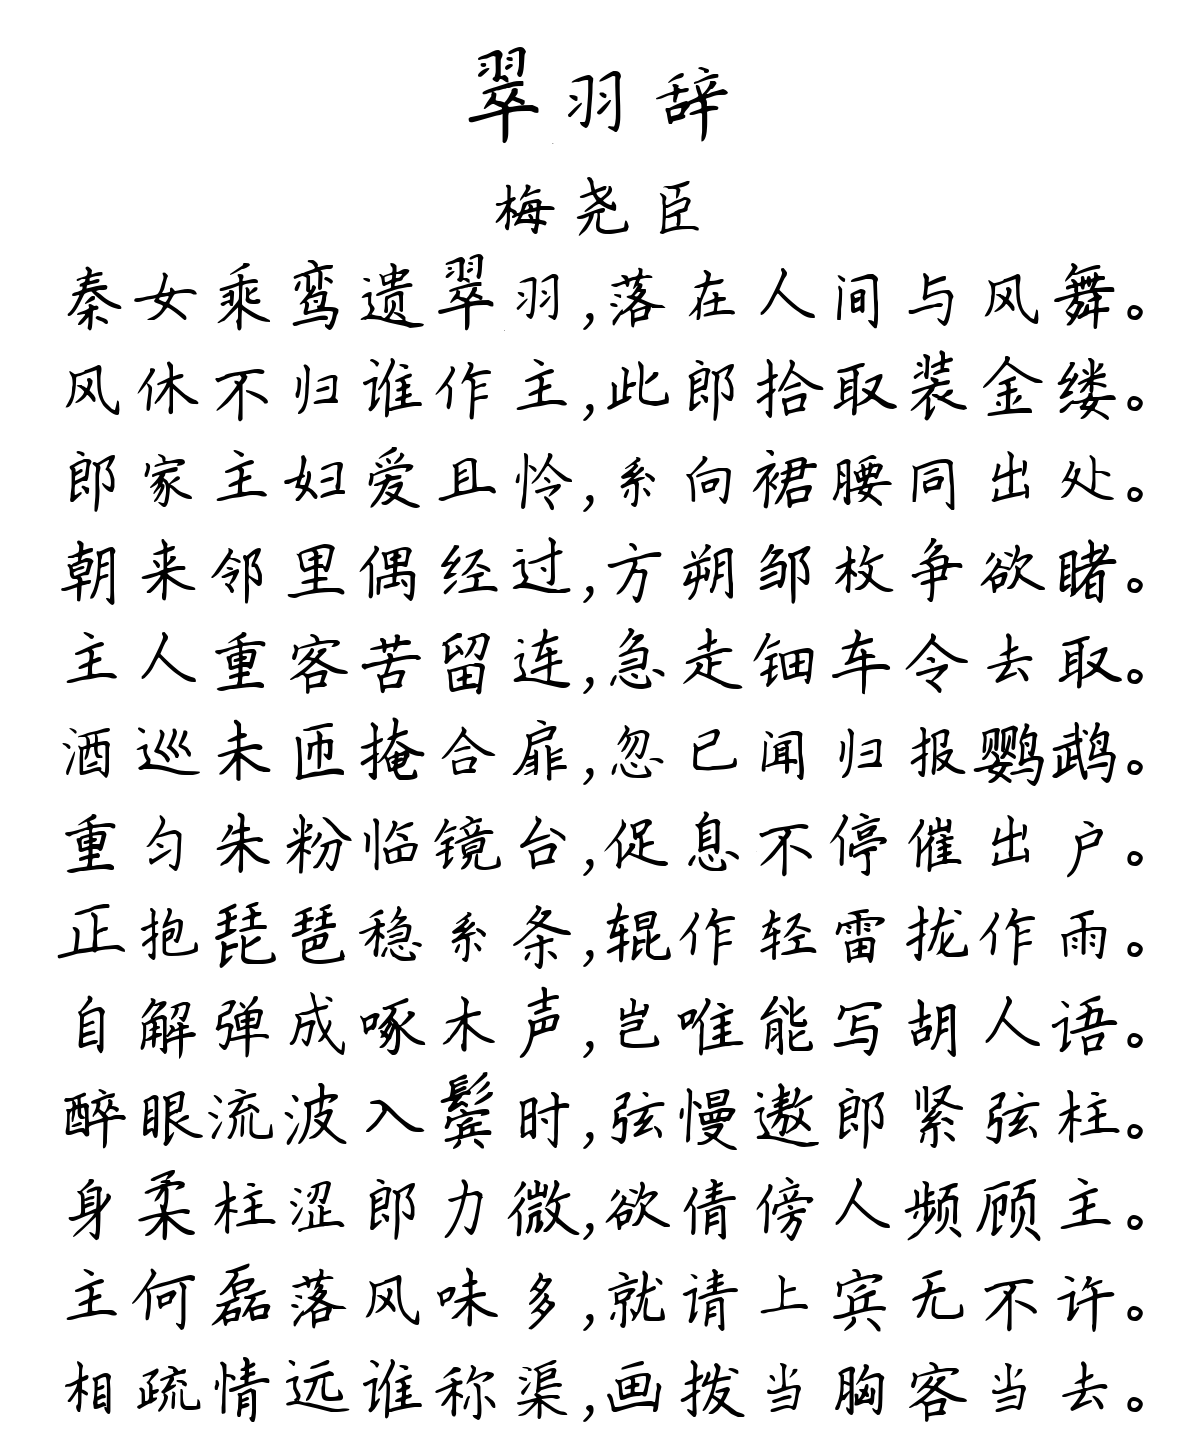 翠羽辞
梅尧臣
秦女乘鸾遗翠羽,落在人间与风舞。
风休不归谁作主,此郎拾取装金缕。
郎家主妇爱且怜,系向裙腰同出处。
朝来邻里偶经过,方朔邹枚争欲睹。
主人重客苦留连,急走钿车令去取。
酒巡未匝掩合扉,忽已闻归报鹦鹉。
重匀朱粉临镜台,促息不停催出户。
正抱琵琶稳系条,辊作轻雷拢作雨。
自解弹成啄木声,岂唯能写胡人语。
醉眼流波入鬓时,弦慢遨郎紧弦柱。
身柔柱涩郎力微,欲倩傍人频顾主。
主何磊落风味多,就请上宾无不许。
相疏情远谁称渠,画拨当胸客当去。